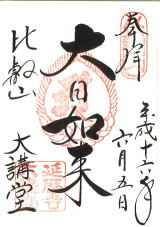 奉拝
平成十六年
六月五日
大日如来
比叡山
大講堂